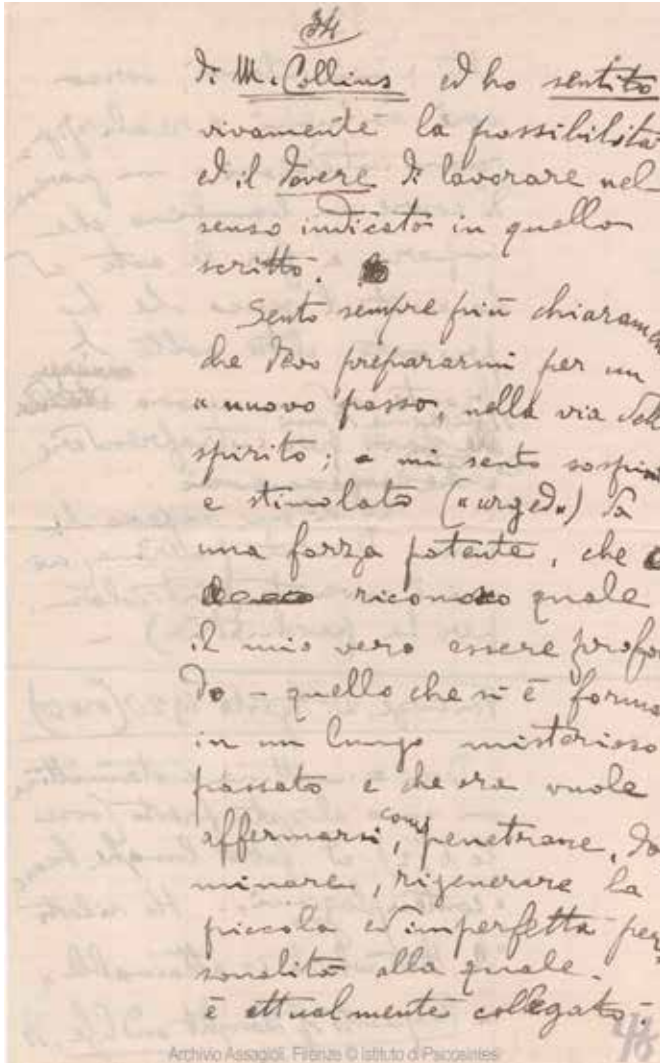 34
di M. Collins ed ho sentito
vivamente la possibilità
ed il dovere di lavorare nel
senso indicato in quello
scritto.
Sento sempre più chiaram
che devo prepararmi per un
"nuovo passo" nella via dell
spirito; e mi sento sospin
e stimolato ("urged") da
una forza potente, che
riconosco quale
il mio vero essere profon
do - quello che si è forma
in un lungo misterioso
passato e che ora vuole
affermarsi, penetrare, do
minare, rigenerare la
piccola ed imperfetta per
sonalità alla quale
è attualmente collegato -
48
Archivio Assagioli, Firenze © Istituto di Psicosintesi